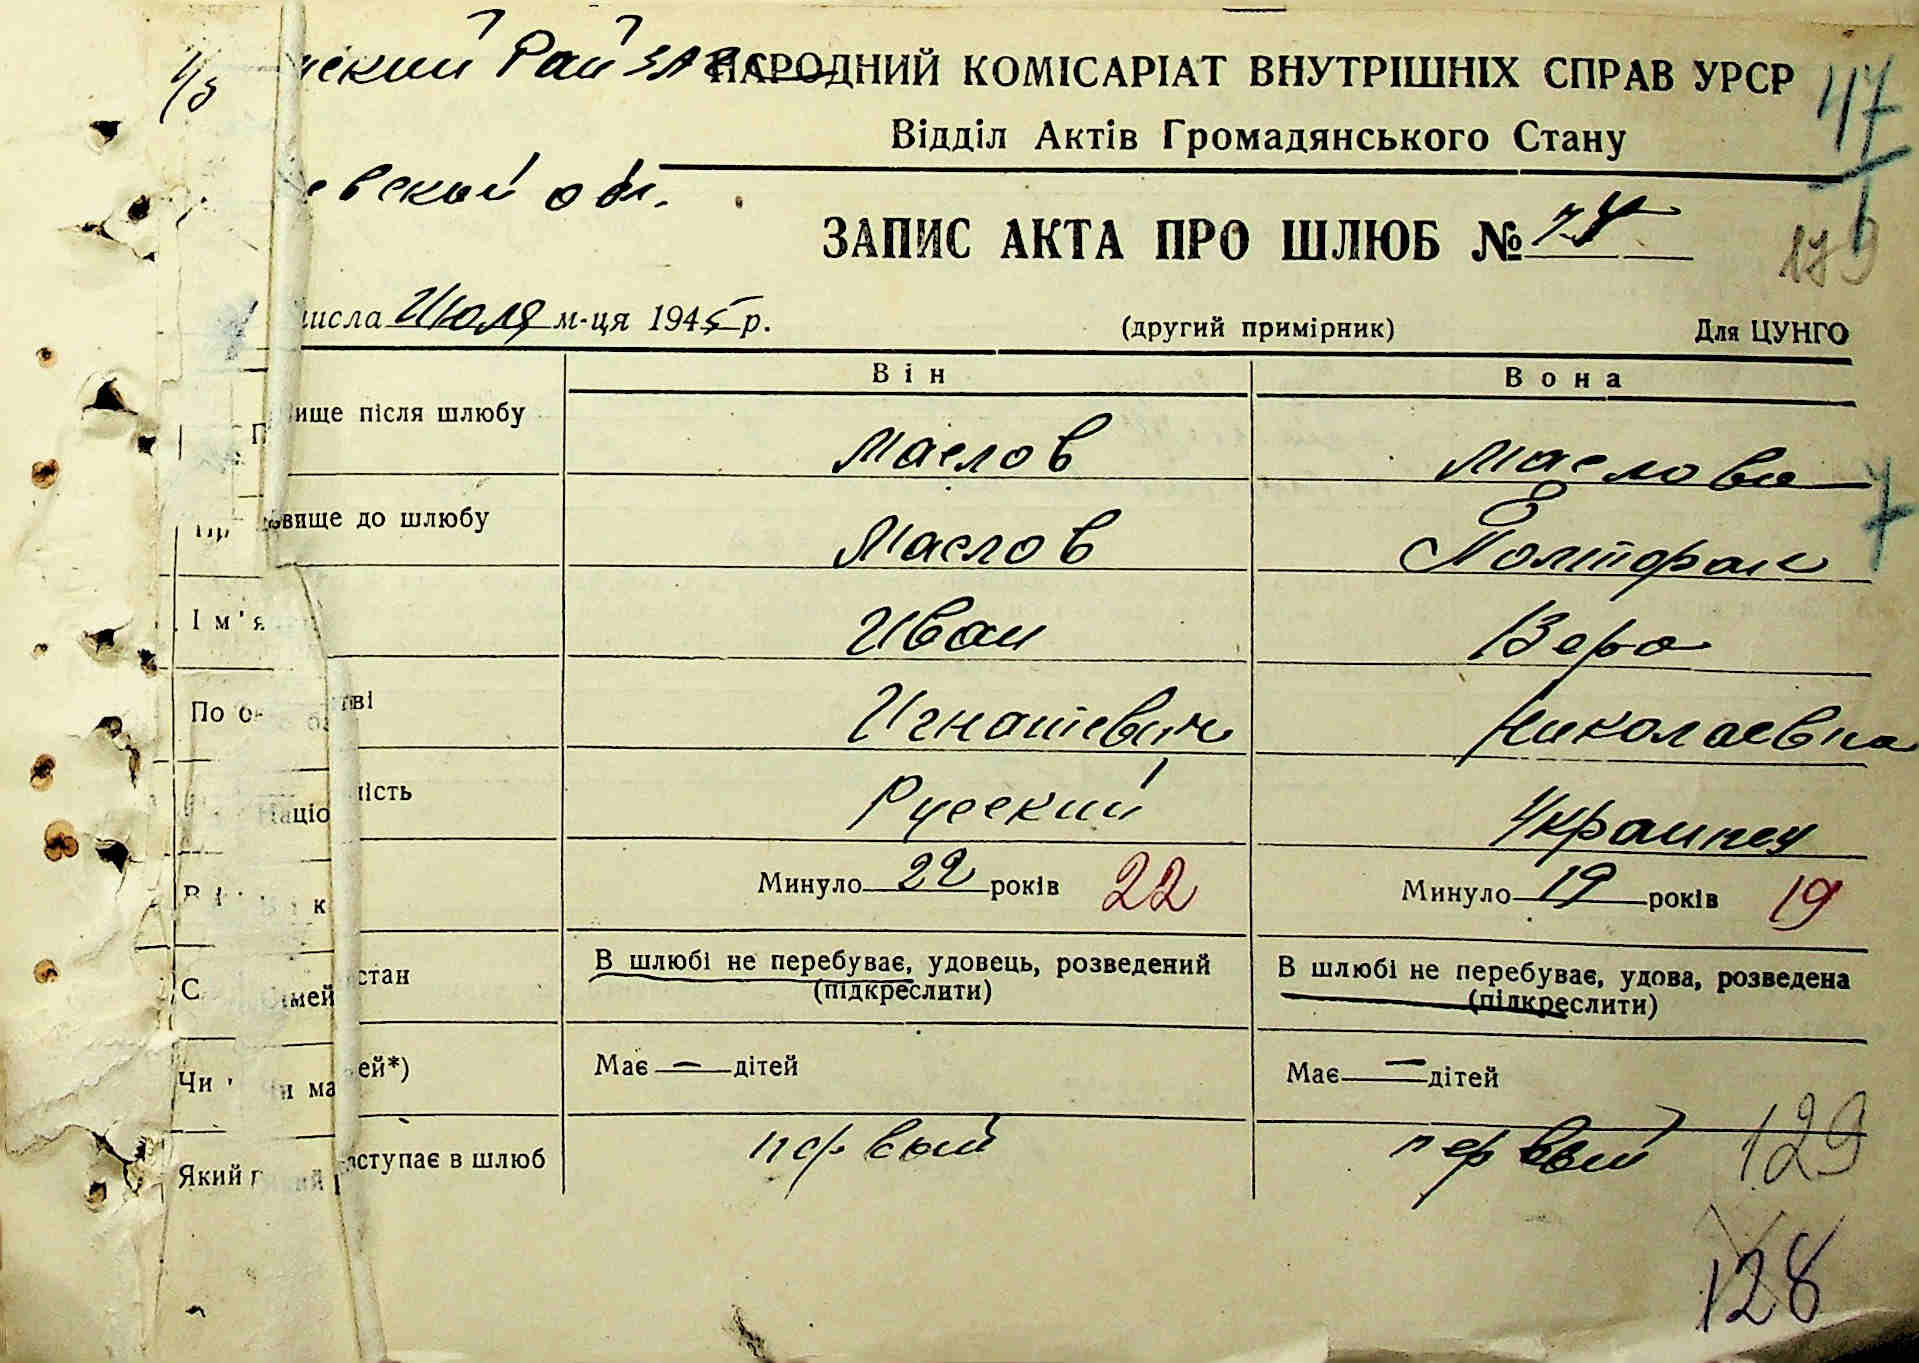 ский Рай ЗАГС НАРОДНИЙ КОМІСАРІАТ ВНУТРІШНІХ СПРАВ УРСР 47
Відділ Актів Громадянського Стану
евской обл.
ЗАПИС АКТА ПРО ШЛЮБ № 74
числа Июля м-ця 1945 р. (другий примірник) Для ЦУНГО
Він Вона
вище після шлюбу Маслов Маслова
звище до шлюбу Маслов Полторак
Ім'я Иван Вера
По ба тві Игнатевич Николаевна
Націо ність Русский Украинка
Вік Минуло 22 років 22 Минуло 19 років 19
Сімей стан В шлюбі не перебуває, удовець, розведений (підкреслити) В шлюбі не перебуває, удова, розведена (підкреслити)
Чи ма ей*) Має — дітей Має — дітей
Який р вступає в шлюб первый первый 129
128